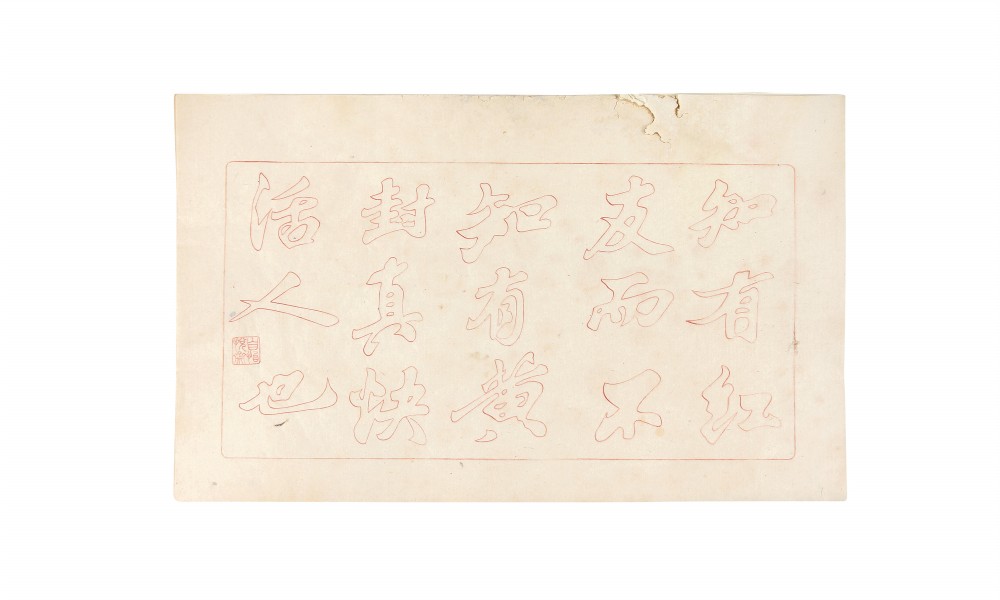 知有紅
友而不
知有黃
封真快
活人也